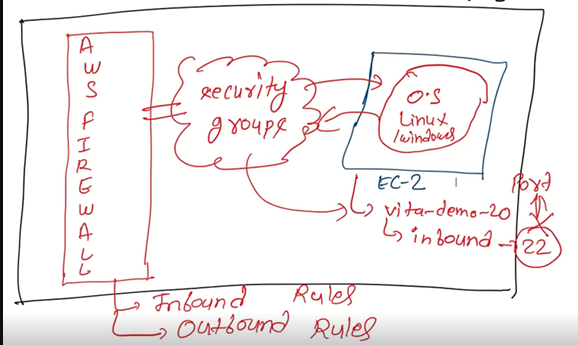 AWS FIREWALL
security
groups
O.S
Linux
/windows
EC-2
Port
vita-demo-20
inbound - 22
Inbound Rules
Outbound Rules